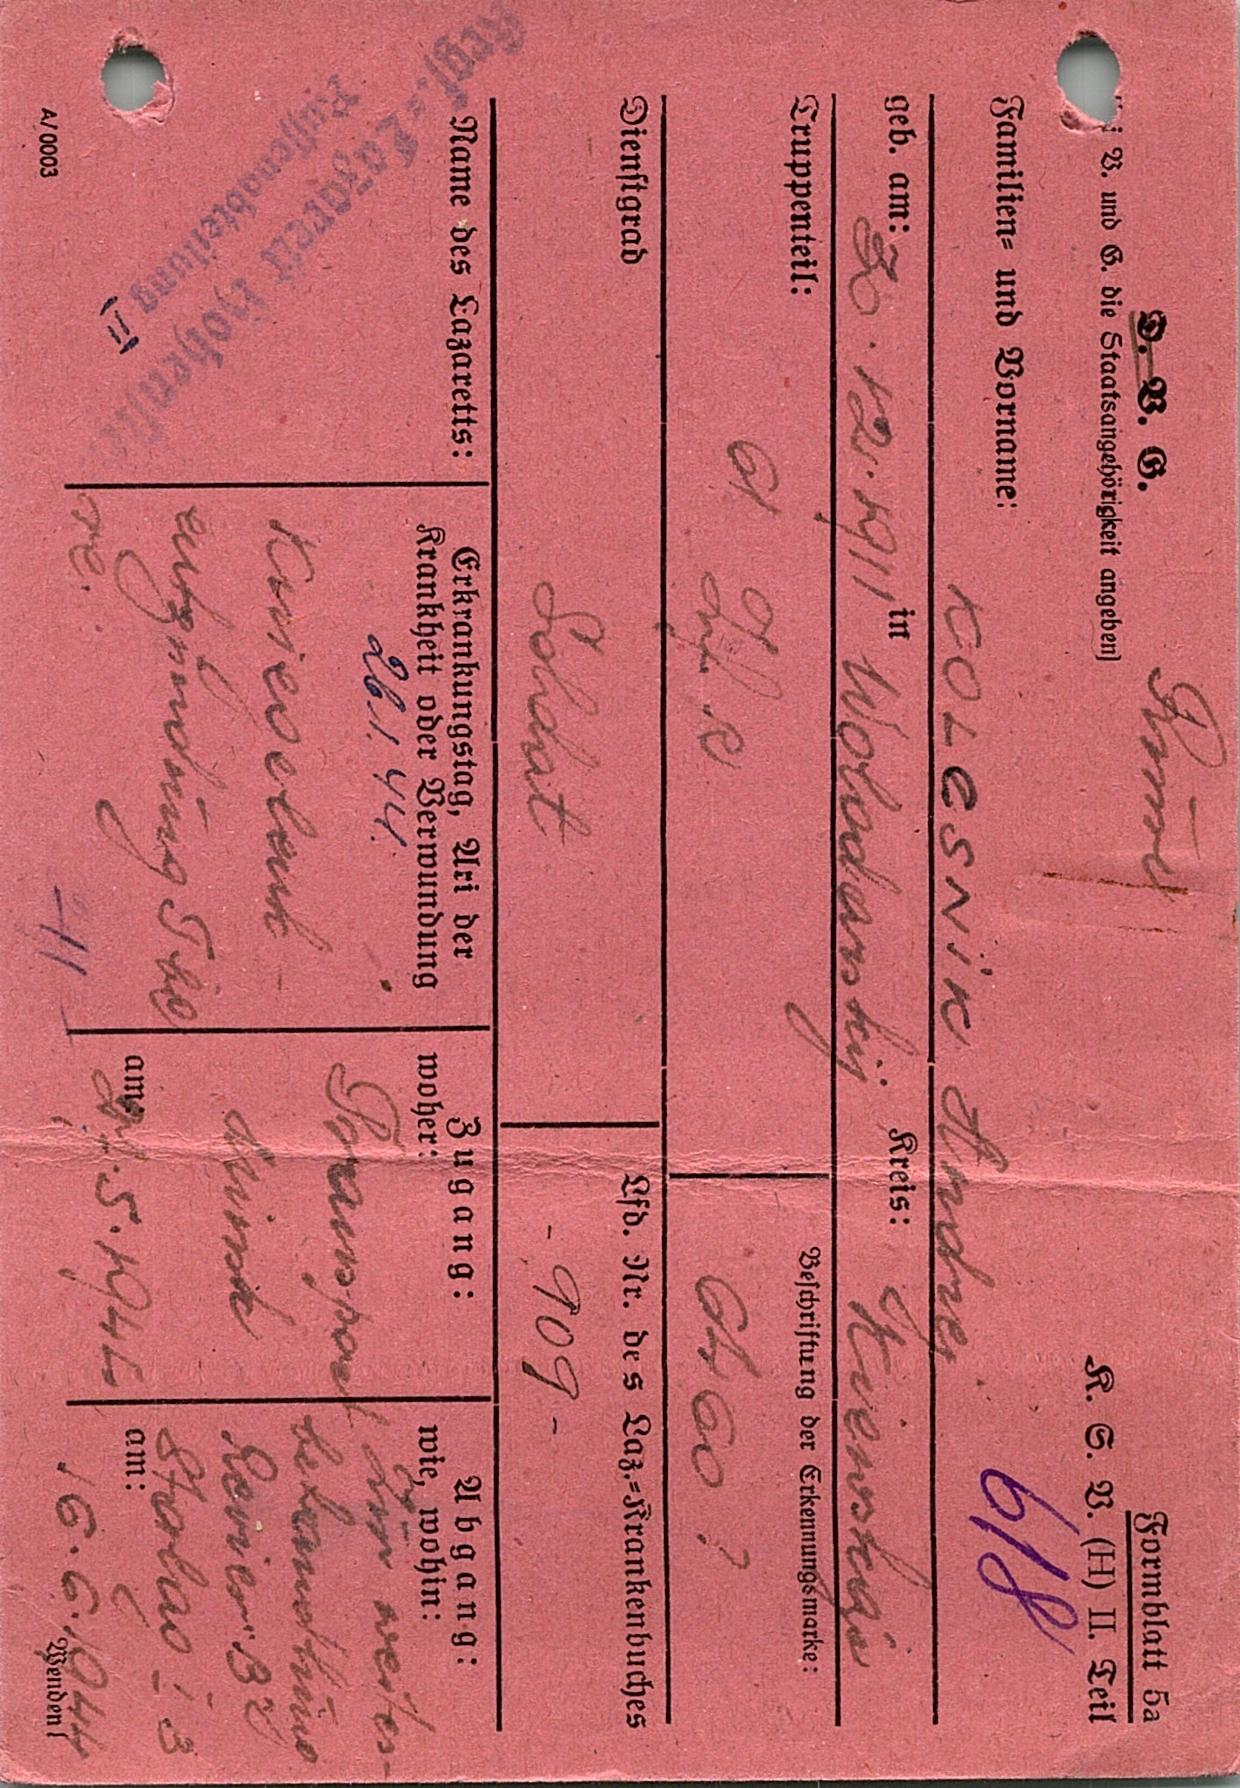 Formblatt 5a
D. V. G. Russe
K. S. V. (H) II. Teil
V. und G. die Staatsangehörigkeit angeben)
618
Familien= und Vorname: KOLESNiK Andrej
geb. am: 30.12.1911 in Woladarskij Kreis: Kiewskaja
Truppenteil: 61 Inf. R
Beschriftung der Erkennungsmarke: 6160 ?
Dienstgrad Soldat
Lfd. Nr. des Laz.=Krankenbuches - 909 -
Name des Lazaretts:
Krgf.=Lazarett Hohenstein
Russenabteilung
II
Erkrankungstag, Art der
Krankheit oder Verwundung
26.1.44.
Kniegelenk-
entzündung Tbc
re.
11
Zugang:
woher:
Transport
Minsk
am: 21.5.1944
Abgang:
wie, wohin:
Zur weiter-
behandlung
Revier B
Stalag I B
am: 16.6.1944
Wenden!
A/0003